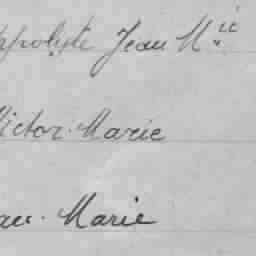 ppolyte Jean M.ie
Victor Marie
au. Marie